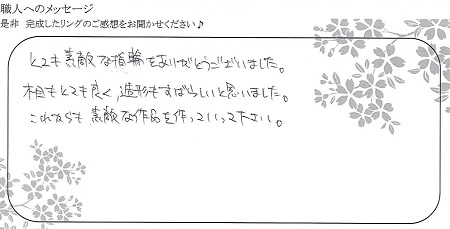 職人へのメッセージ
是非 完成したリングのご感想をお聞かせください♪
とても素敵な指輪をありがとうございました。
木目もとても良く、造形もすばらしいと思いました。
これからも素敵な作品を作っていって下さい。